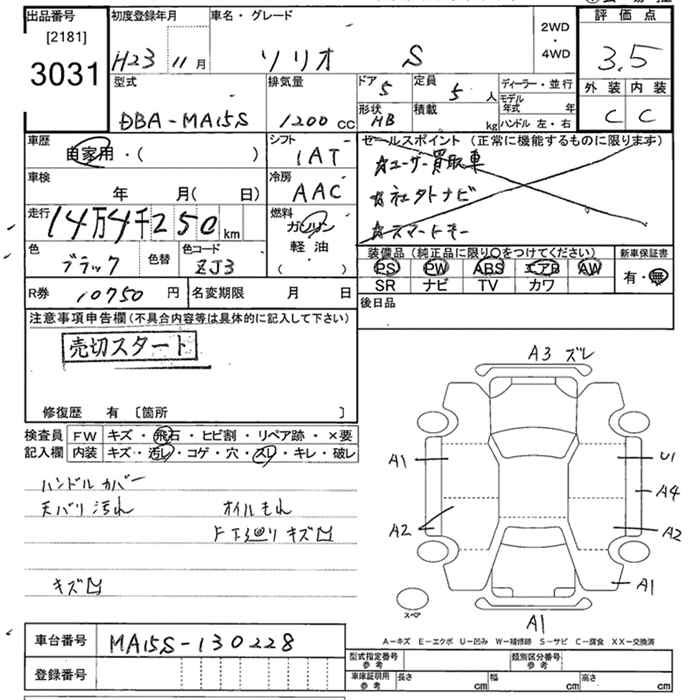 出品番号 初度登録年月 車名・グレード 2WD・4WD 評価点
[2181]
3031 H23 11月 ソリオ S 3.5
型式 排気量 ドア 5 定員 5人 ディーラー・並行 外装 内装
DBA-MA15S 1200cc 形状 HB 積載 kg モデル年式 年 ハンドル 左・右 C C
車歴 自家用・( ) シフト 1AT セールスポイント(正常に機能するものに限ります)
☆ユーザー買取車
車検 年 月( 日) 冷房 AAC ☆社外ナビ
走行 14万4千250km 燃料 ガソリン 軽油 ( ) ☆スマートキー
色 ブラック 色替 色コード ZJ3 装備品(純正品に限り○をつけてください) 新車保証書
PS PW ABS エアB AW 有・無
SR ナビ TV カワ
R券 10750円 名変期限 月 日 後日品
注意事項申告欄(不具合内容等は具体的に記入して下さい)
売切スタート
修復歴 有 〔箇所 〕
検査員記入欄 FW キズ・飛石・ヒビ割・リペア跡・×要
内装 キズ・汚レ・コゲ・穴・スレ・キレ・破レ
ハンドルカバー
天バリ汚れ オイルもれ
F下廻りキズ凹
キズ凹
A3 ズレ
A1 U1
A4
A2 A2
A1
スペア A1
A-キズ E-エクボ U-凹み W-補修跡 S-サビ C-腐食 XX-交換済
車台番号 MA15S-130228
登録番号
型式指定番号 参考 類別区分番号 参考
車庫証明用 参考 長さ cm 幅 cm 高さ cm